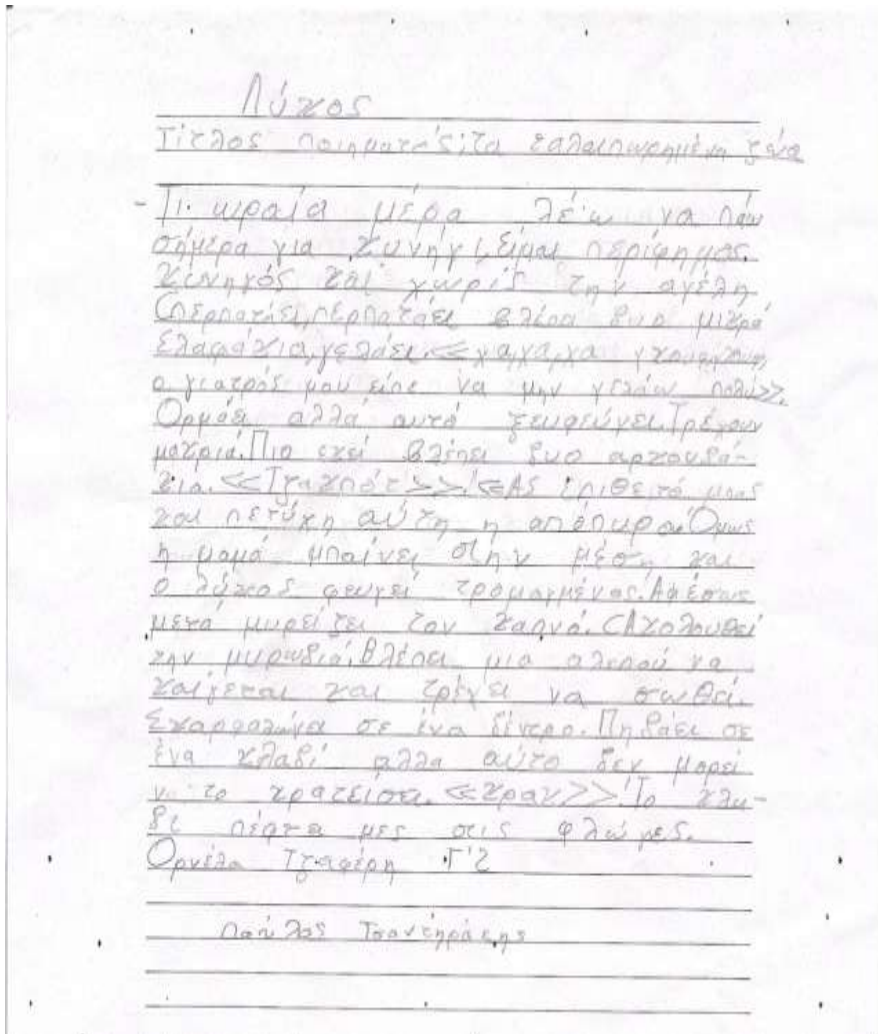 Λύκος
Τίτλος ποιηματός; τα ταλαιπωρημένα ξένα
- Τι ωραία μέρα λέω να πάω
σήμερα για κυνήγι, Είμαι περίφημος
κυνηγός και χωρίς την αγέλη
(περπατάει, περπατάει βλέπει δυο μικρά
Ελαφάκια, γελάει. <<χα, χα, χα
ο γιατρός μου είπε να μην γελάω πολύ>>.
Ορμάει αλλά αυτά ξεφεύγει. Τρέχουν
μακριά. Πιο εκεί βλέπει δυο αρκουδά-
κια. <<Τζακπότ>>! <<Ας επιθειτό μπας
και πετύχη αύτη η απόπιρα. Όμως
η μαμά μπαίνει στην μέση και
ο λύκος φευγεί τρομαγμένος. Αμέσως
μετά μυρείζει τον καπνό. (Ακολουθεί
την μυρωδιά, Βλέπει μια αλεπού να
καίγεται και τρέχει να σωθεί.
Σκαρφαλώνα σε ένα δέντρο. Πηδάει σε
ένα κλαδί αλλα αύτο δεν μπορεί
να το κρατείσει. <<κρακ>>. Το κλα-
δι πέφτει μες στις φλώγες.
Ορνέλα Τζαφέρη Γ'2
Παύλος